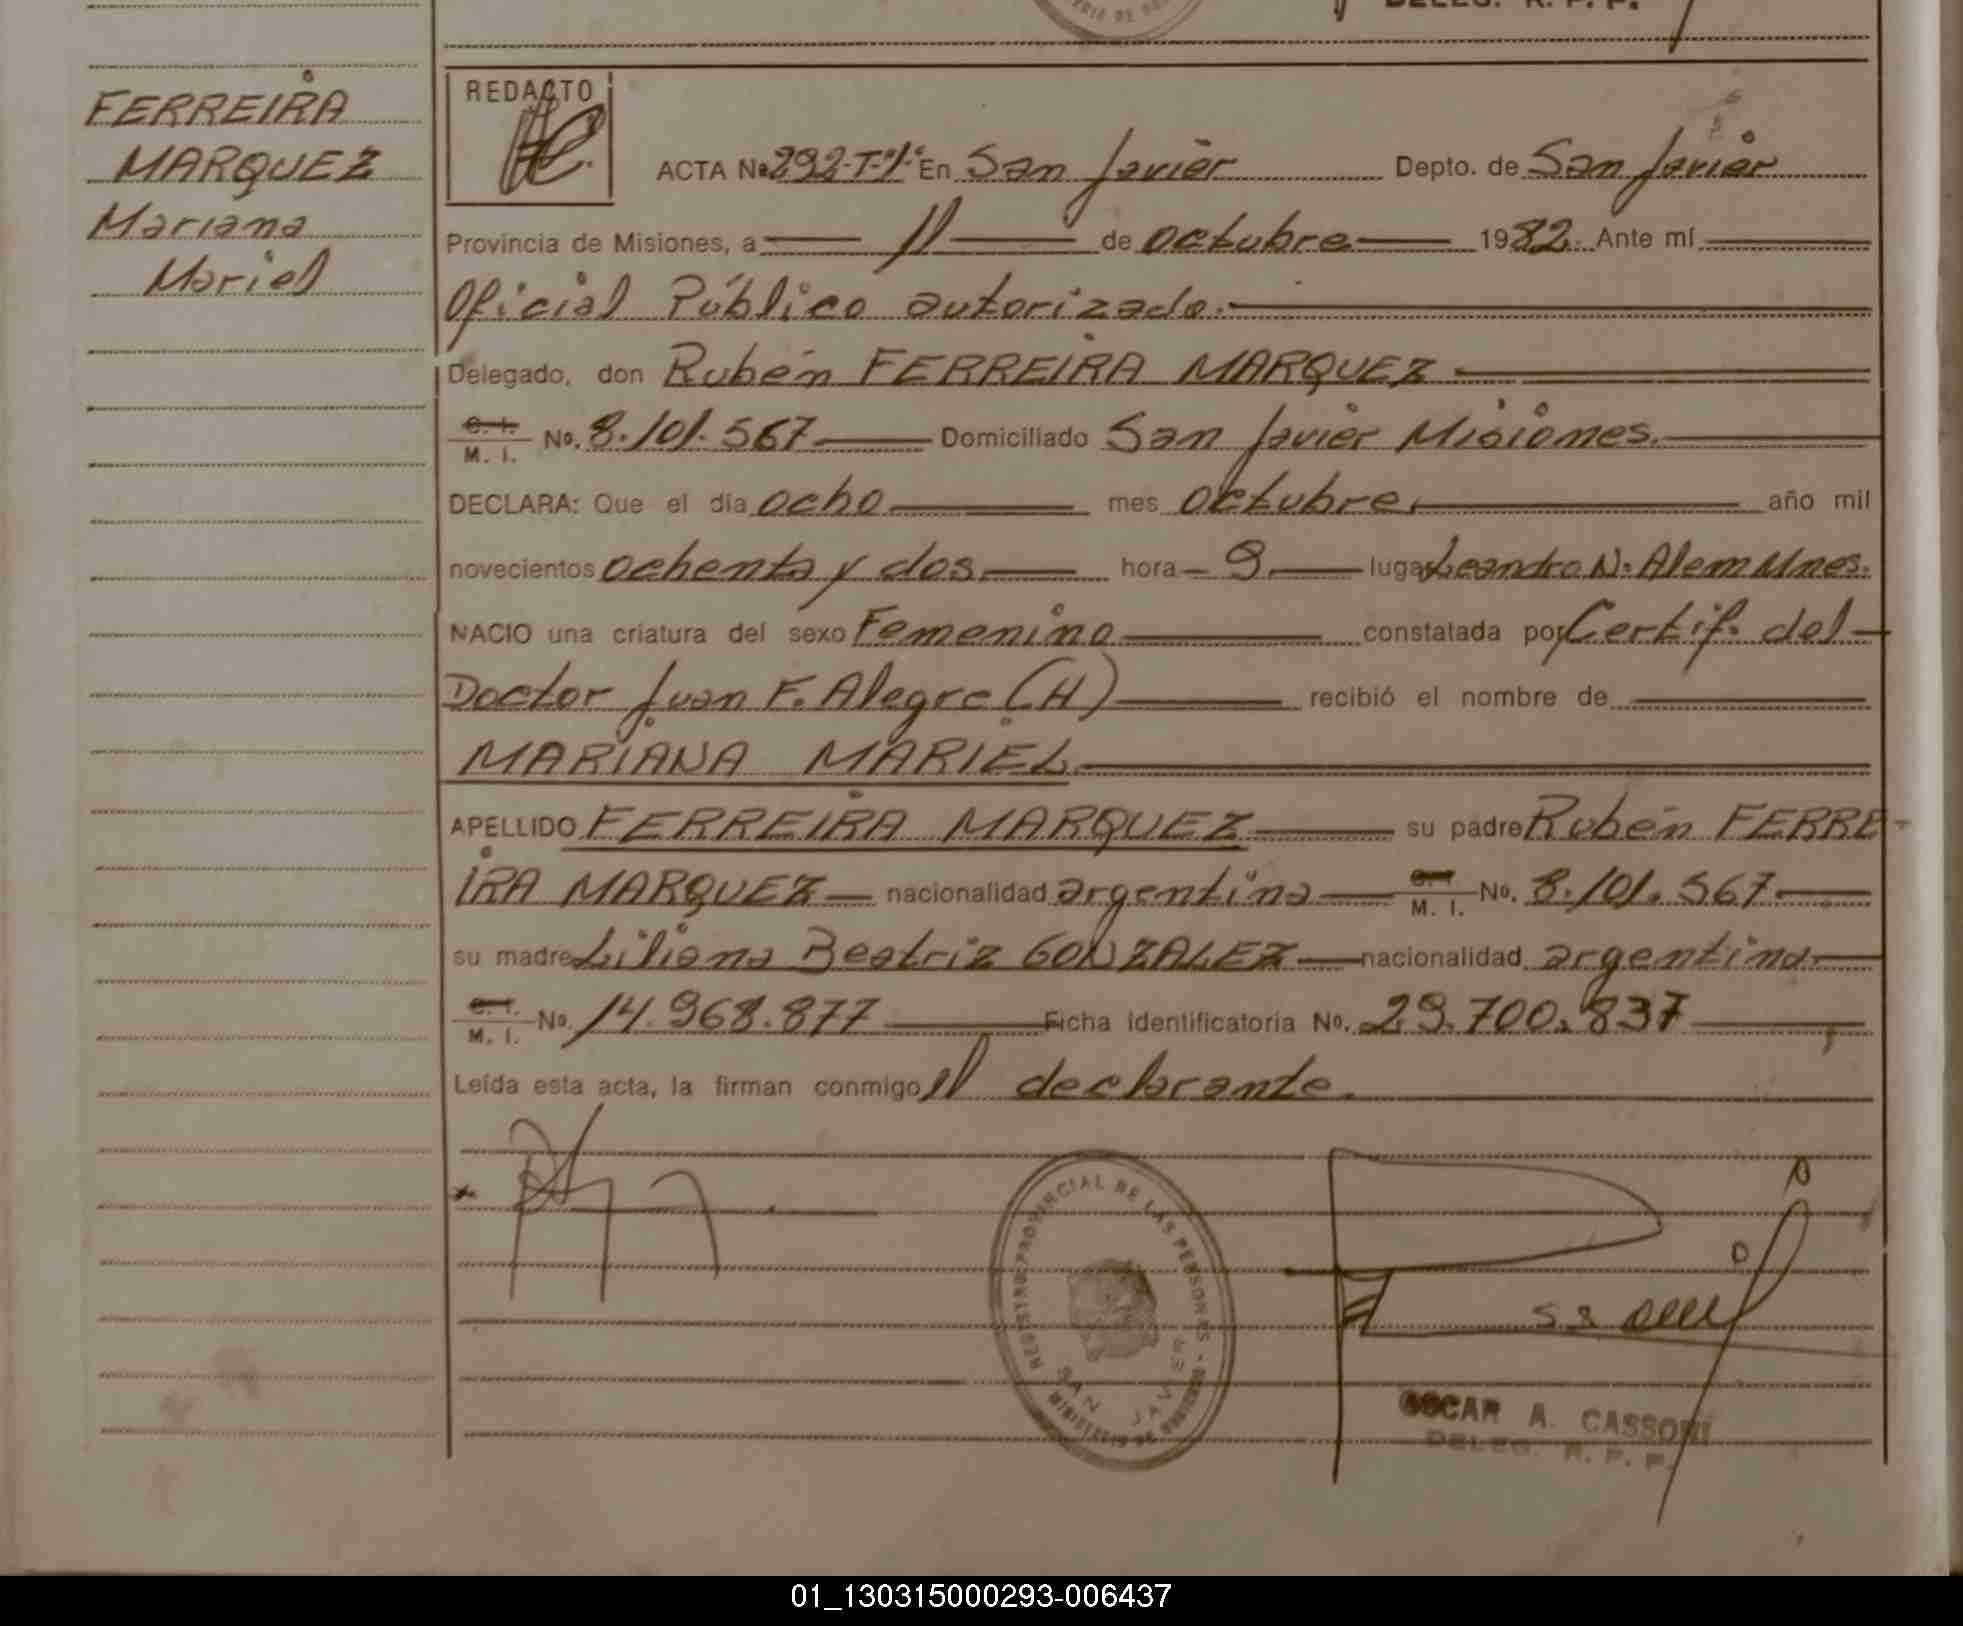 DELEG. R. P. P.
FERREIRA
MARQUEZ
Mariana
Mariel
REDACTO
ACTA No 292-T-1º- En San Javier Depto. de San Javier
Provincia de Misiones, a 11 de octubre 1982. Ante mí
Oficial Público autorizado.
Delegado, don Rubén FERREIRA MARQUEZ
C. I. M. I. No. 8.101.567 Domiciliado San Javier Misiones.
DECLARA: Que el día ocho mes octubre año mil
novecientos ochenta y dos hora 9 lugar Leandro N. Alem Mnes.
NACIO una criatura del sexo Femenino constatada por Certif. del
Doctor Juan F. Alegre (H) recibió el nombre de
MARIANA MARIEL
APELLIDO FERREIRA MARQUEZ su padre Rubén FERRE-
IRA MARQUEZ nacionalidad argentina C. I. M. I. No. 8.101.567
su madre Liliana Beatriz GONZALEZ nacionalidad argentina
C. I. M. I. No. 14.968.877 Ficha identificatoria No. 29.700.837
Leída esta acta, la firman conmigo el declarante.
REGISTRO PROVINCIAL DE LAS PERSONAS
SAN JAVIER
OSCAR A. CASSONI
DELEG. R. P. P.
01_130315000293-006437